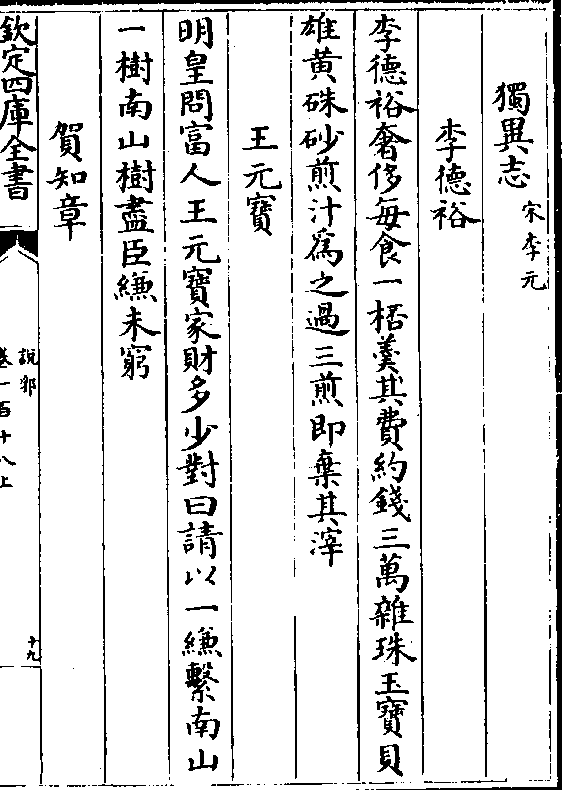 獨異志
宋李元
李德裕
李德裕奢侈每食一桮羹其費約錢三萬雜珠玉寶貝
雄黄硃砂煎汁爲之過三煎即棄其滓
王元寶
明皇問富人王元寶家財多少對曰請以一縑繫南山
一樹南山樹盡臣縑未窮
賀知章
欽定四庫全書
說郛
卷一百十八上
十九